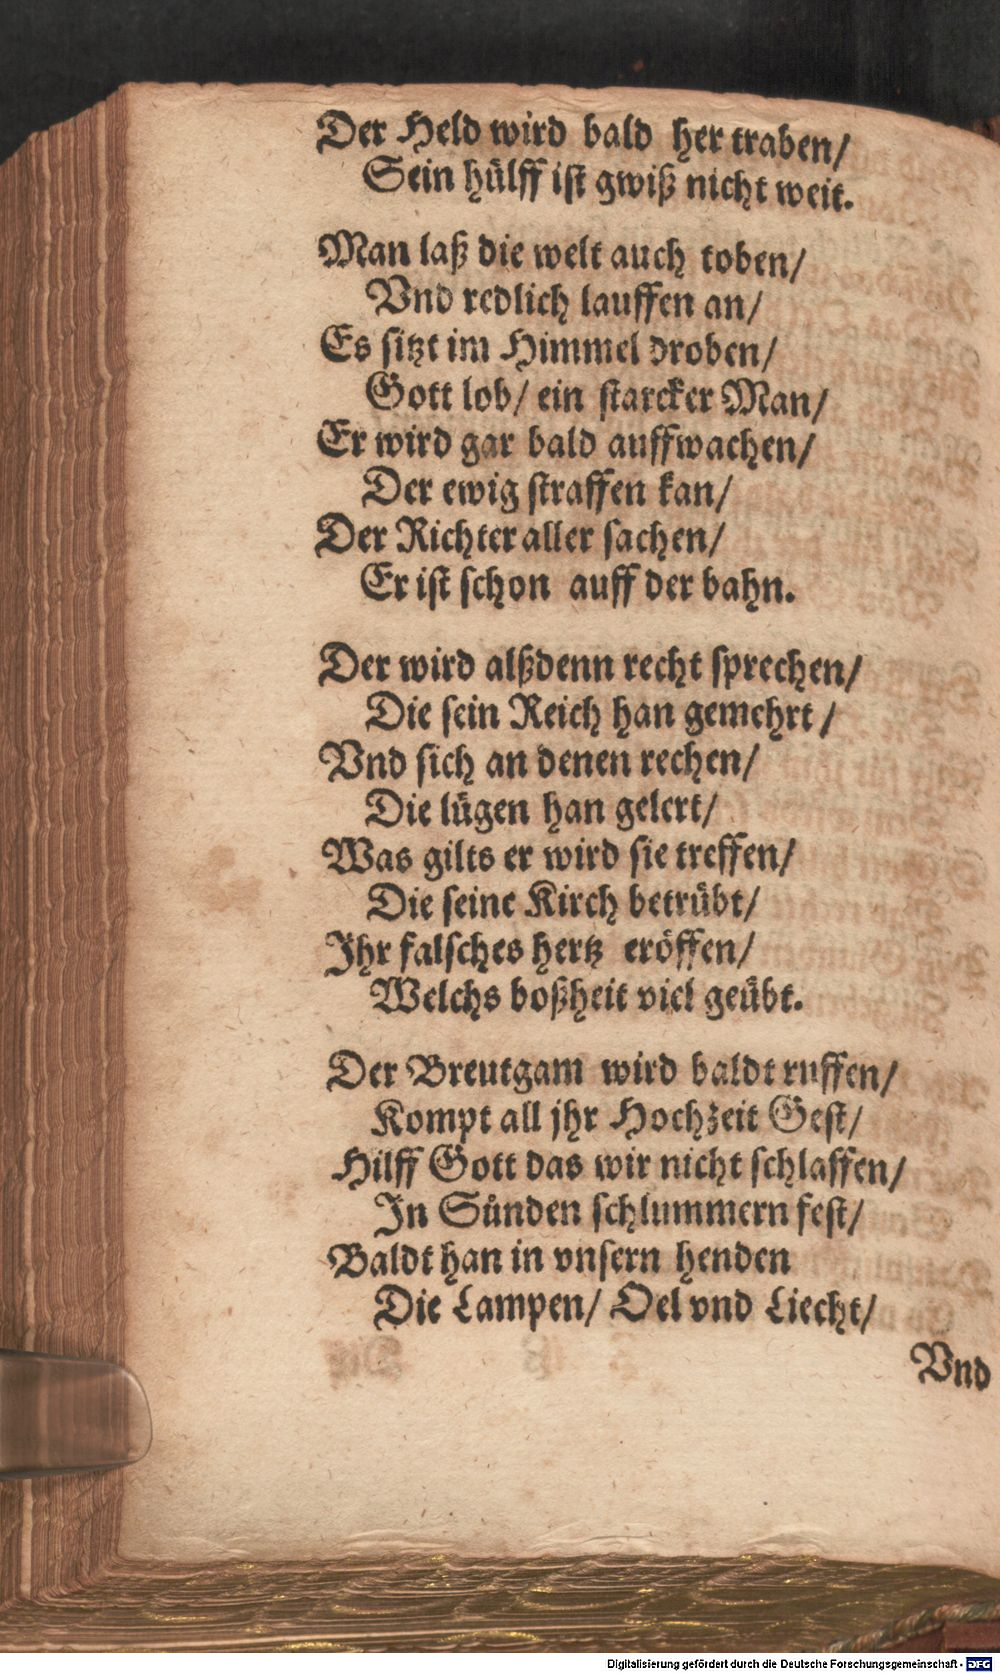 Der Held wird bald her traben/
Sein hülff ist gwiß nicht weit.
Man laß die welt auch toben/
Vnd redlich lauffen an/
Es sitzt im Himmel droben/
Gott lob/ ein starcker Man/
Er wird gar bald auffwachen/
Der ewig straffen kan/
Der Richter aller sachen/
Er ist schon auff der bahn.
Der wird alßdenn recht sprechen/
Die sein Reich han gemehrt/
Vnd sich an denen rechen/
Die lügen han gelert/
Was gilts er wird sie treffen/
Die seine Kirch betrübt/
Ihr falsches hertz eröffen/
Welchs boßheit viel geübt.
Der Breutgam wird baldt ruffen/
Kompt all jhr Hochzeit Gest/
Hilff Gott das wir nicht schlaffen/
In Sünden schlummern fest/
Baldt han in vnsern henden
Die Lampen/ Oel vnd Liecht/
Vnd
Digitalisierung gefördert durch die Deutsche Forschungsgemeinschaft - DFG